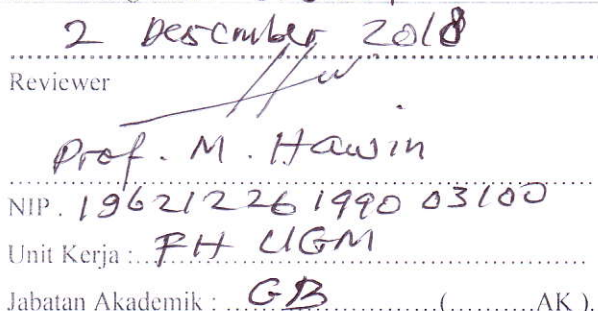 2 Desember 2018
Reviewer
Prof. M. Hawin
NIP. 19621226 1990 03100
Unit Kerja : FH UGM
Jabatan Akademik : GB (..........AK ).